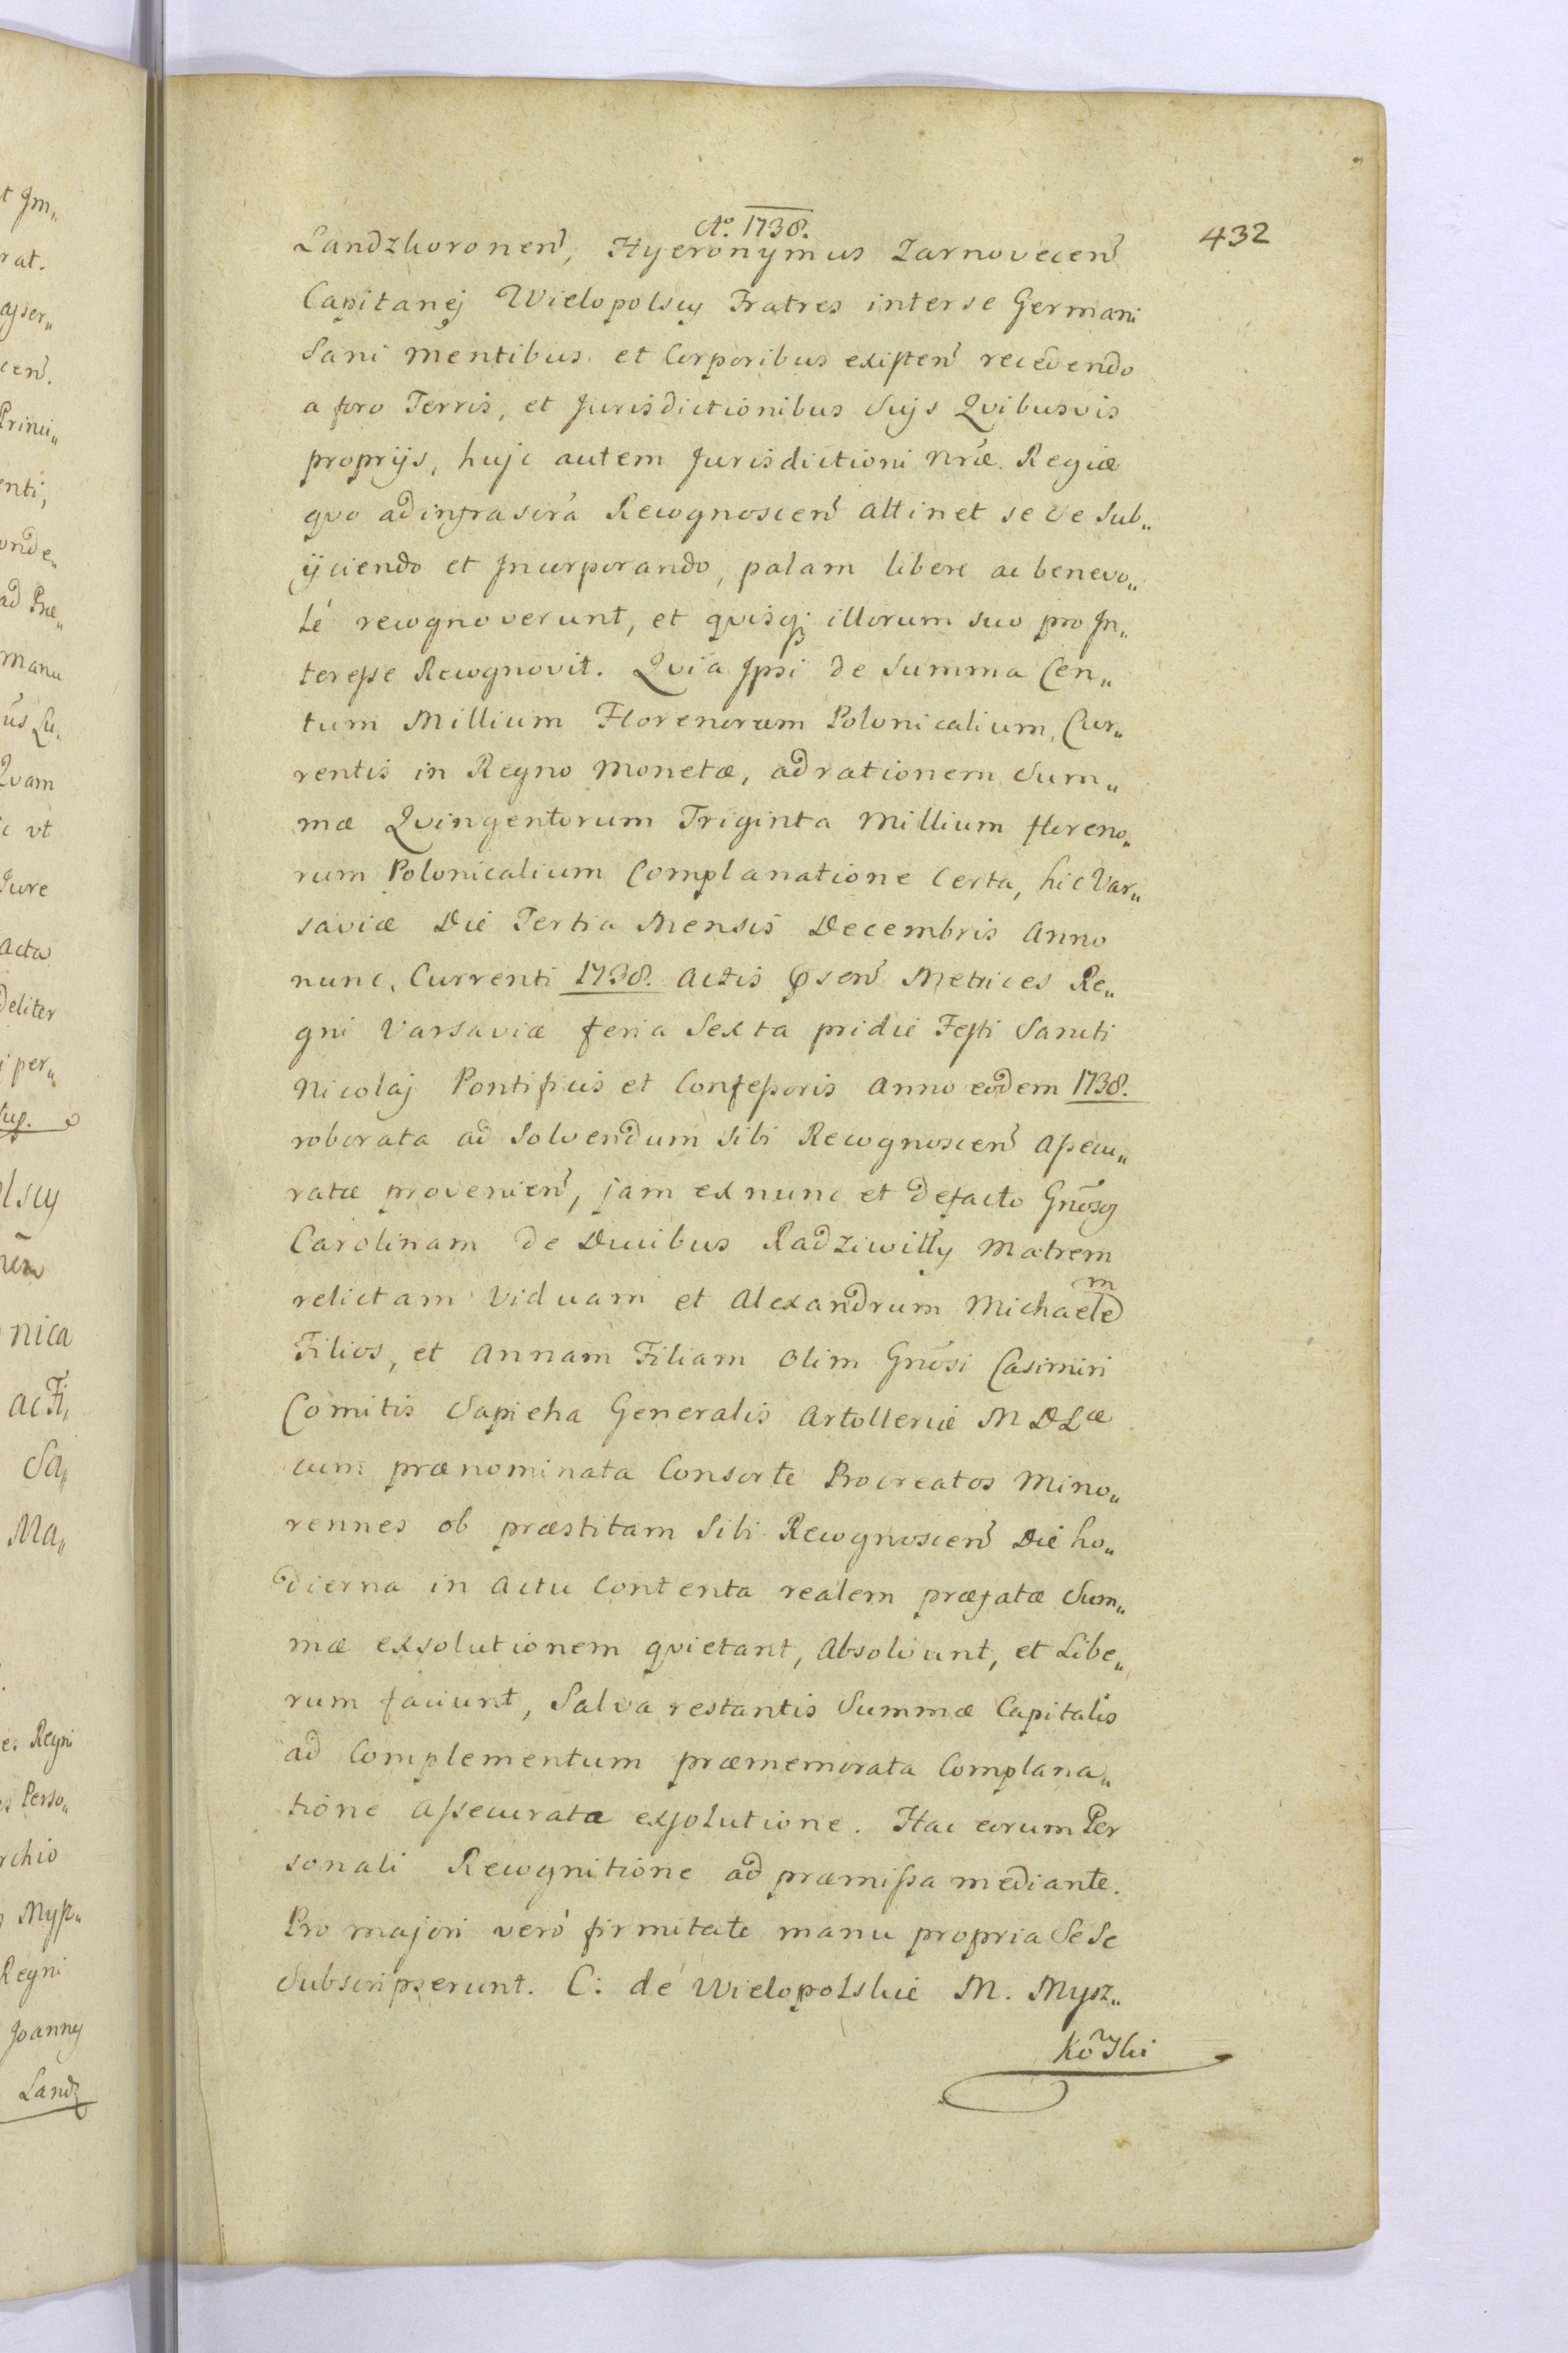 Ao. 1738.
432
Landzkoronen, Hyeronymus Zarnovecen
Capitanej Wielopolscy Fratres inter se Germani
Sani mentibus et Corporibus existen recedendo
a foro Terris, et Jurisdictionibus Suijs Qvibusvis
proprijs, huic autem Jurisdictioni nræ Regiæ
qvo ad infrascra Recognoscen attinet se se Sub„
ijciendo et Incorporando, palam libere ac benevo„
lé recognoverunt, et qvisq; illorum suo pro In„
teresse Recognovit. Qvia Ipsi de Summa Cen„
tum Millium Florenorum Polonicalium, Cur„
rentis in Regno Monetæ, ad rationem Sum„
mæ Qvingentorum Triginta Millium floreno„
rum Polonicalium Complanatione certa, hic Var„
saviæ Die Tertia Mensis Decembris Anno
nunc Currenti 1738. Actis psen Metrices Re„
gni Varsaviæ feria Sexta pridie Festi Sancti
Nicolaj Pontificis et Confessoris Anno eodem 1738.
roborata ad Solvendum Sibi Recognoscen assecu„
ratæ provenien, jam ex nunc et defacto Gnosg
Carolinam de Ducibus Radziwiłły Matrem
relictam Viduam et Alexandrum Michaelem
Filios, et Annam Filiam Olim Gnosi Casimiri
Comitis Sapieha Generalis Artolleriæ M D Læ
cum prænominata Consorte Procreatos Mino„
rennes ob præstitam Sibi Recognoscen Die ho„
dierna in Actu Contenta realem præfatæ Sum„
mæ exsolutionem qvietant, Absolvunt, et Libe„
rum faciunt, Salva restantis Summæ Capitalis
ad Complementum præmemorata Complana„
tione Assecuratæ exsolutione. Hac eorum Per
sonali Recognitione ad præmissa mediante.
Pro majori veró firmitate manu propria Se Se
Subscripserunt. C: de Wielopolskie M. Mysz„
Kowski